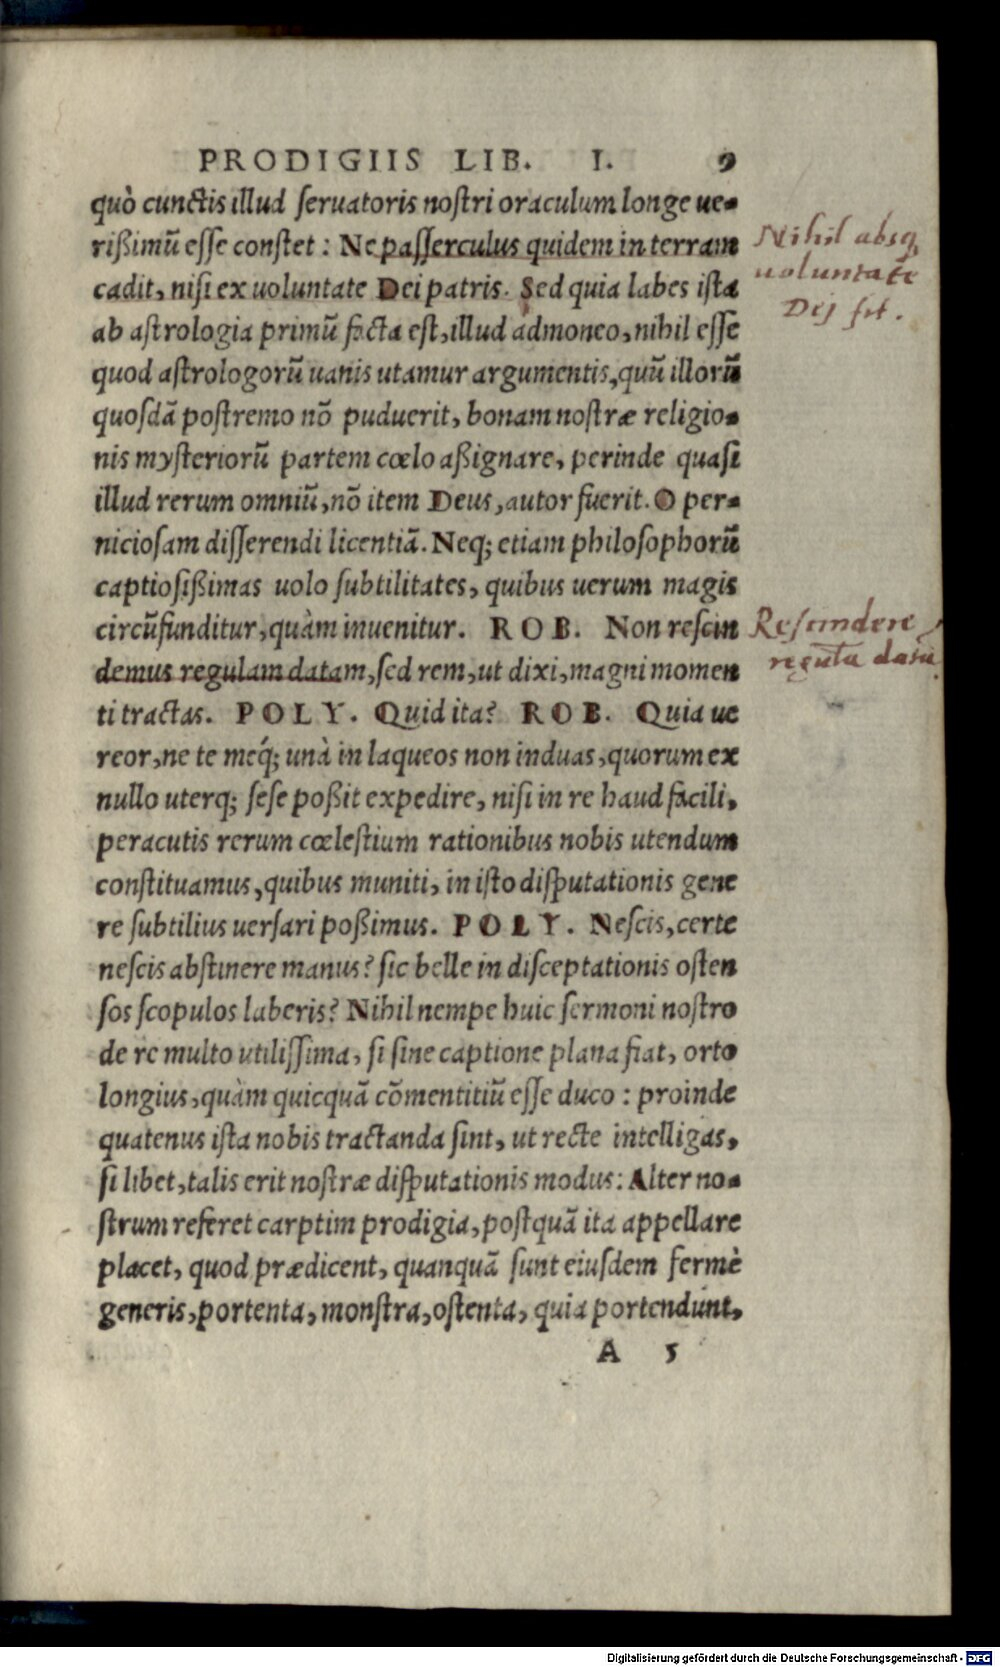 PRODIGIIS LIB. I. 9
quò cunctis illud seruatoris nostri oraculum longe ue-
rißimũ esse constet : Ne passerculus quidem in terram
cadit, nisi ex uoluntate Dei patris. Sed quia labes ista
ab astrologia primũ facta est, illud admoneo, nihil esse
quod astrologorũ uanis utamur argumentis, quũ illorũ
quosdã postremo nõ puduerit, bonam nostræ religio-
nis mysteriorũ partem cœlo aßignare, perinde quasi
illud rerum omniũ, nõ item Deus, autor fuerit. O per-
niciosam disserendi licentiã. Neq; etiam philosophorũ
captiosißimas uolo subtilitates, quibus uerum magis
circũfunditur, quàm inuenitur. ROB. Non rescin
demus regulam datam, sed rem, ut dixi, magni momen
ti tractas. POLY. Quid ita? ROB. Quia ue
reor, ne te meq́; unà in laqueos non induas, quorum ex
nullo uterq; sese poßit expedire, nisi in re haud facili,
peracutis rerum cœlestium rationibus nobis utendum
constituamus, quibus muniti, in isto disputationis gene
re subtilius uersari poßimus. POLY. Nescis, certe
nescis abstinere manus? sic belle in disceptationis osten
sos scopulos laberis? Nihil nempe huic sermoni nostro
de re multo utilissima, si sine captione plana fiat, orto
longius, quàm quicquã cõmentitiũ esse duco : proinde
quatenus ista nobis tractanda sint, ut recte intelligas,
si libet, talis erit nostræ disputationis modus: Alter no-
strum referet carptim prodigia, postquã ita appellare
placet, quod prædicent, quanquã sunt eiusdem fermè
generis, portenta, monstra, ostenta, quia portendunt,
A 5
Nihil absq
uoluntate
Dej fit.
Rescindere
regula datã
Digitalisierung gefördert durch die Deutsche Forschungsgemeinschaft - DFG